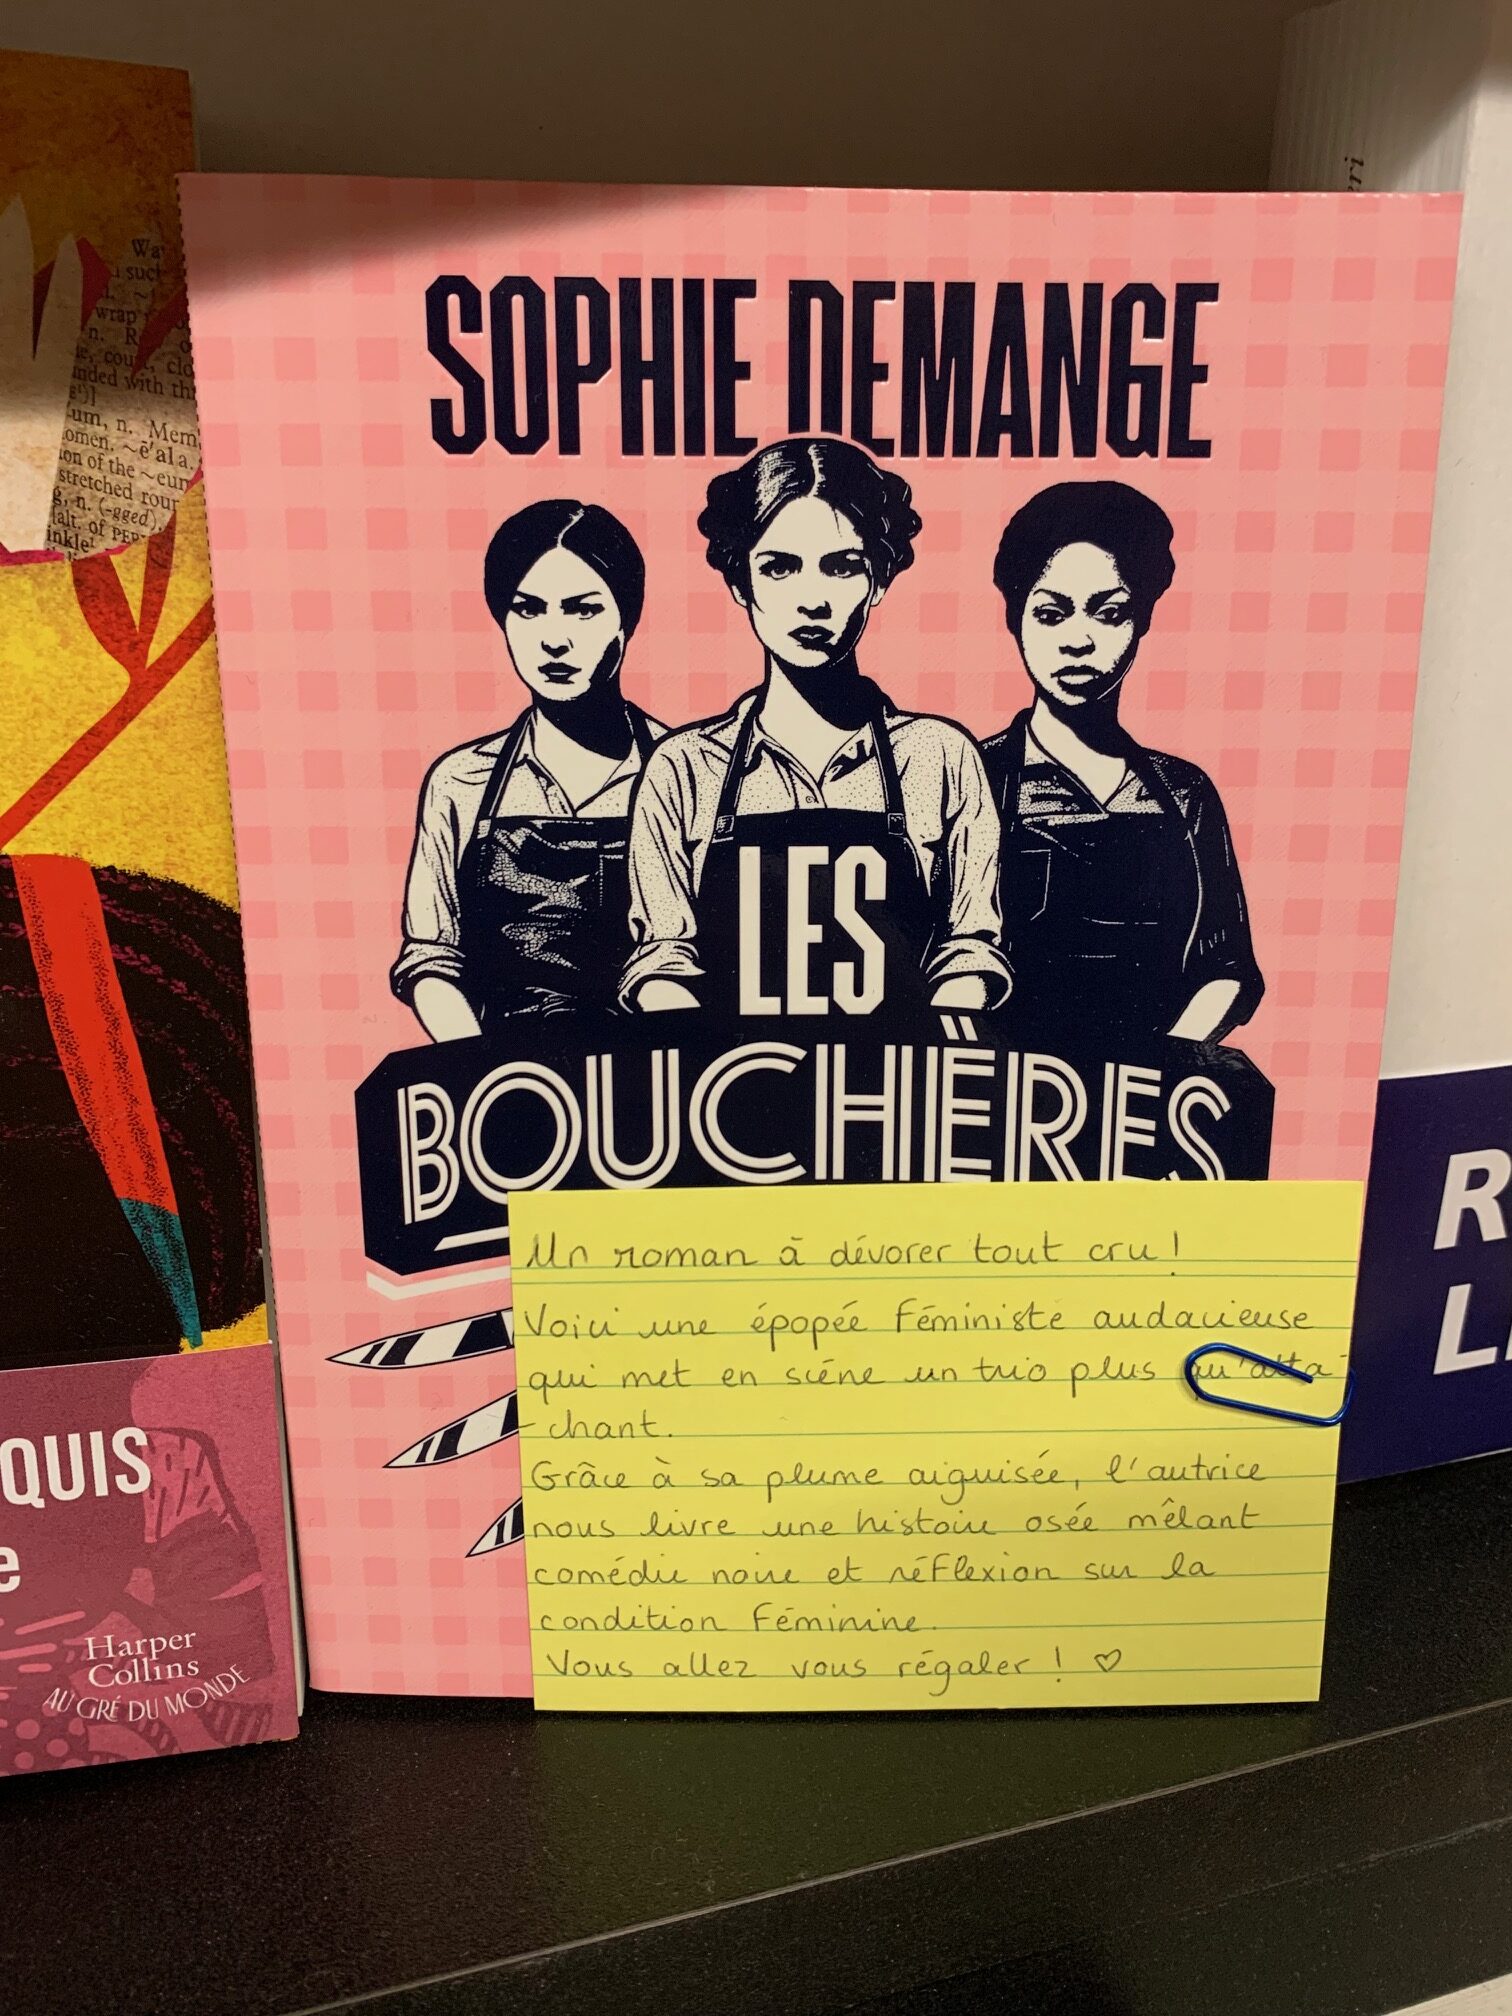 Wa
suc
wrap
n. R
cour, clo
nded with thr
um, n. Mem
omen, ~ē'ala.
ion of the ~eum
stretched roun
g, n. (-gged).
alt. of PEP
inkle¹
QUIS
e
Harper
Collins
AU GRÉ DU MONDE
SOPHIE DEMANGE
LES
BOUCHÈRES
Un roman à dévorer tout cru !
Voici une épopée féministe audacieuse
qui met en scène un trio plus qu'atta-
-chant.
Grâce à sa plume aiguisée, l'autrice
nous livre une histoire osée mêlant
comédie noire et réflexion sur la
condition féminine.
Vous allez vous régaler ! ♡
eri
R
L